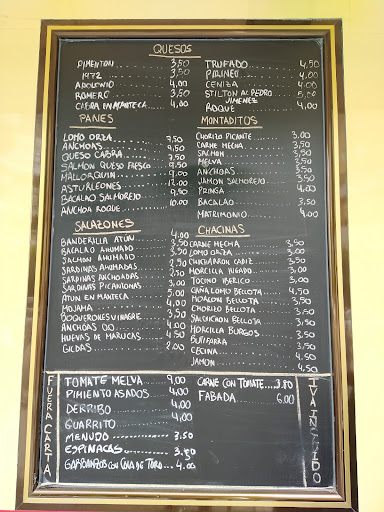 QUESOS
PIMENTON 3,50
1972 3,50
ADOLOVIO 4,00
ROMERO 3,50
CABRA EN MANTECA 4,00
TRUFADO 4,50
PIRINEO 4,00
CENIZA 4,00
STILTON AL PEDRO JIMENEZ 5,00
ROQUE 4,00
PANES
LOMO ORZA 7,50
ANCHOAS 9,50
QUESO CABRA 7,50
SALMON QUESO FRESCO 9,50
MALLORQUIN 9,00
ASTURLEONES 12,00
BACALAO SALMOREJO 9,50
ANCHOA ROQUE 10.00
MONTADITOS
CHORIZO PICANTE 3,00
CARNE MECHA 3,50
SALMON 3,50
MELVA 3,50
ANCHOAS 3,50
JAMON SALMOREJO 3,50
PRINGA 4,00
BACALAO 3,50
MATRIMONIO 4,00
SALAZONES
BANDERILLA ATUN 4,00
BACALAO AHUMADO 3,50
SALMON AHUMADO 3,50
SARDINAS AHUMADAS 2,50
SARDINAS ANCHOADAS 2,50
SARDINAS PICANTONAS 3,00
ATUN EN MANTECA 5,00
MOJAMA 4,00
BOQUERONES VINAGRE 3,50
ANCHOAS OO 4,00
HUEVAS DE MARUCAS 4,50
GILDAS 2,00
CHACINAS
CARNE MECHA 3,50
LOMO ORZA 3,00
CHICHARRON CADIZ 3,50
MORCILLA HIGADO 3,00
TOCINO IBERICO 3,00
CAÑA LOMO BELLOTA 4,50
MORCON BELLOTA 3,50
CHORIZO BELLOTA 3,50
SALCHICHON BELLOTA 3,50
MORCILLA BURGOS 3,50
BUTIFARRA 3,50
CECINA 4,50
JAMON 4,50
FUERA CARTA
TOMATE MELVA 9,00
PIMIENTO ASADOS 4,00
DERRIBO 4,00
GUARRITO 4,00
MENUDO 3.50
ESPINACAS 3.50
GARBANZOS CON COLA DE TORO 4.00
CARNE CON TOMATE 3.80
FABADA 6,00
IVA INCLUIDO